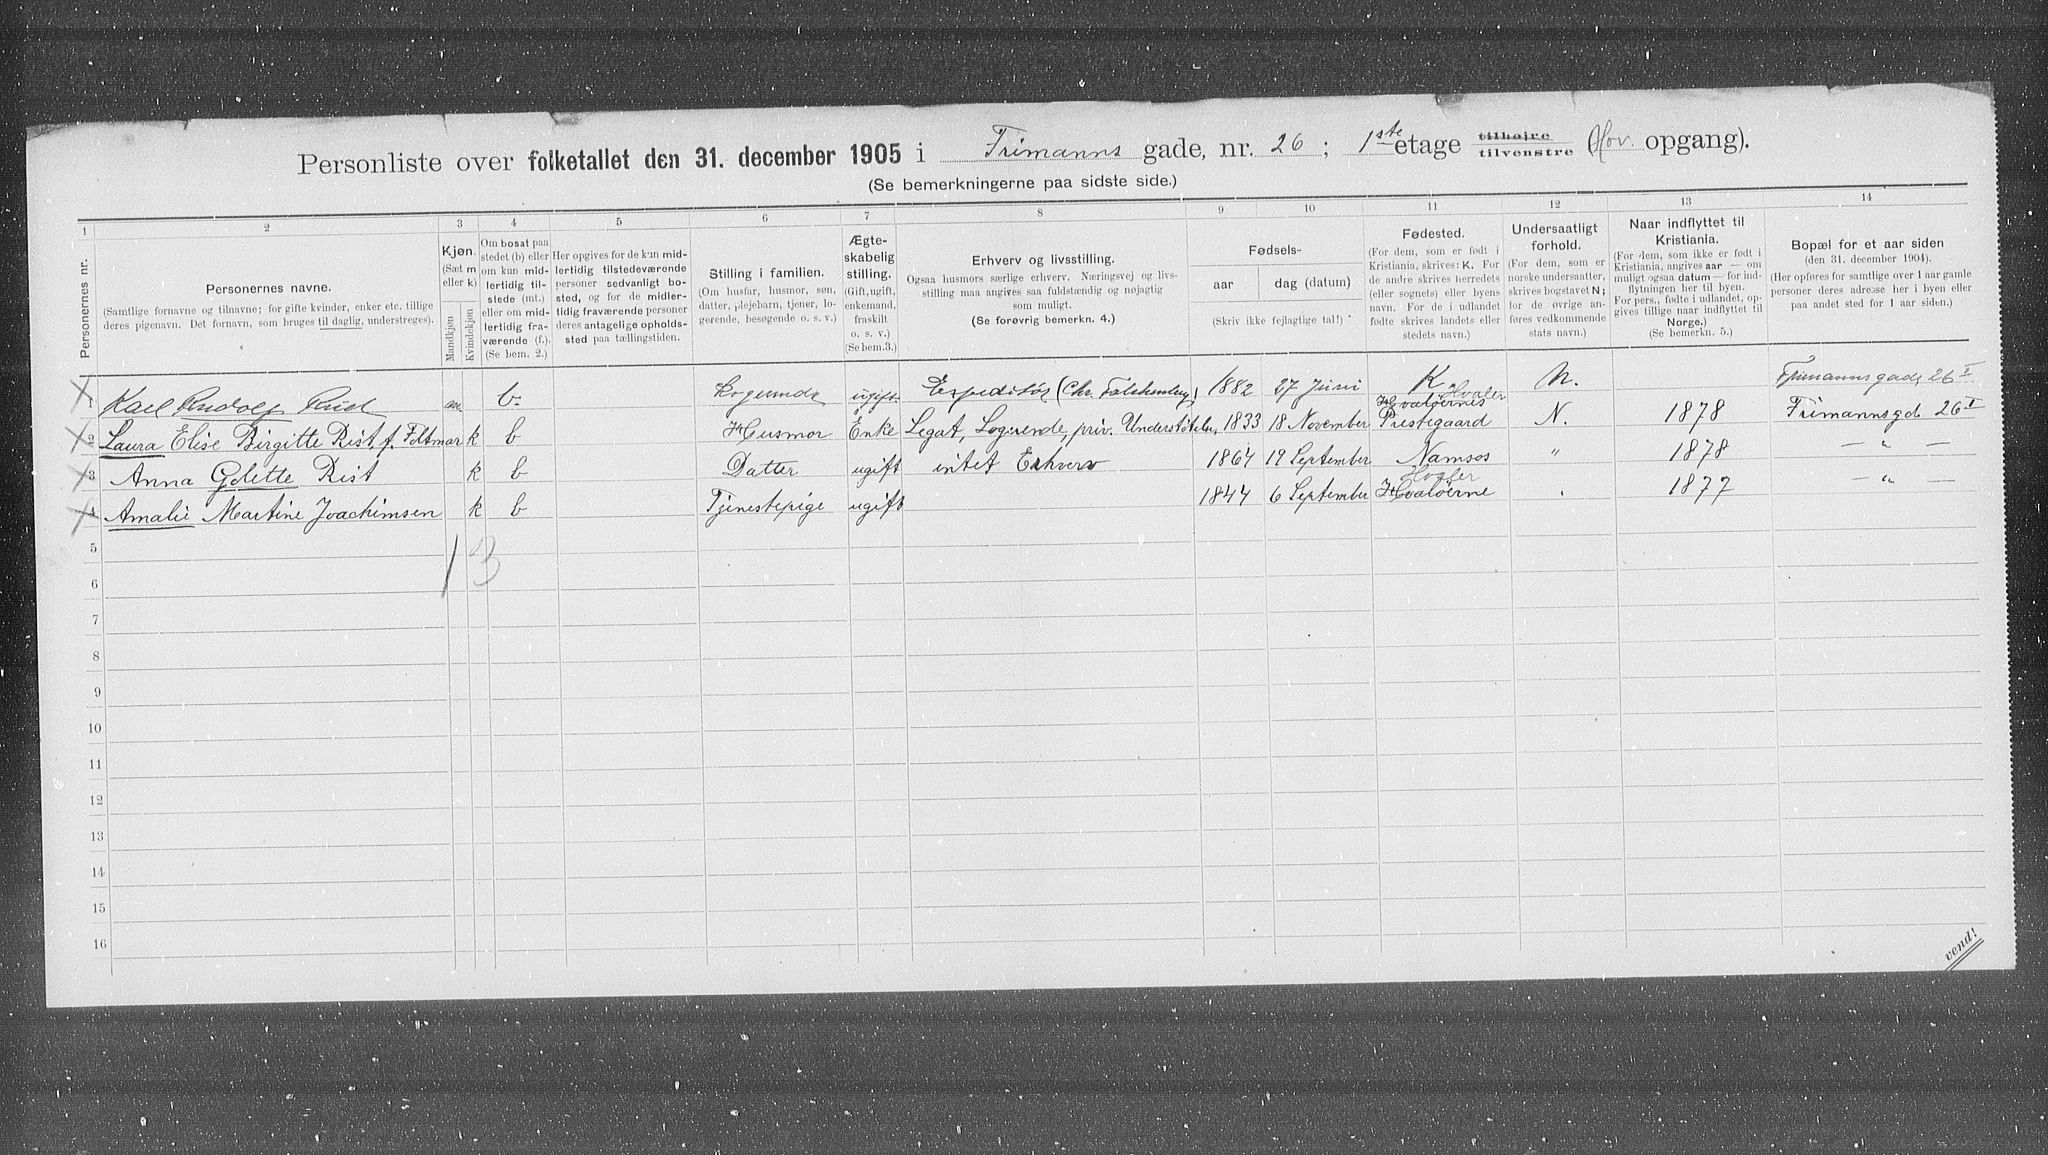 Personliste over folketallet den 31. december 1905 i Frimanns gade, nr. 26; 1ste etage tilhøire tilvenstre (Hov. opgang).
(Se bemerkningerne paa sidste side.)
1 2 3 4 5 6 7 8 9 10 11 12 13 14
Personernes nr.
Personernes navne.
(Samtlige fornavne og tilnavne; for gifte kvinder, enker etc. tillige
deres pigenavn. Det fornavn, som bruges til daglig, understreges).
Kjøn.
(Sæt m
eller k)
Mandkjøn
Kvindekjøn
Om bosat paa
stedet (b) eller
om kun mid-
lertidig til-
stede (mt.)
eller om mid-
lertidig fra-
værende (f.).
(Se bem. 2.)
Her opgives for de kun mid-
lertidig tilstedeværende
personer sedvanligt bo-
sted, og for de midler-
tidig fraværende personer
deres antagelige opholds-
sted paa tællingstiden.
Stilling i familien.
(Om husfar, husmor, søn,
datter, plejebarn, tjener, lo-
gerende, besøgende o. s. v.)
Ægte-
skabelig
stilling.
(Gift, ugift,
enkemand,
fraskilt
o. s. v.)
(Se bem.3.)
Erhverv og livsstilling.
Ogsaa husmors særlige erhverv. Næringsvej og livs-
stilling maa angives saa fuldstændig og nøjagtig
som muligt.
(Se forøvrig bemerkn. 4.)
Fødsels-
aar
dag (datum)
(Skriv ikke fejlagtige tal!)
Fødested.
(For dem, som er født i
Kristiania, skrives: K. For
de andre skrives herredets
(eller sognets) eller byens
navn. For de i udlandet
fødte skrives landets eller
stedets navn.)
Undersaatligt
forhold.
(For dem, som er
norske undersaatter,
skrives bogstavet N;
for de øvrige an-
føres vedkommende
stats navn.)
Naar indflyttet til
Kristiania.
(For dem, som ikke er født i
Kristiania, angives aar — om
muligt ogsaa datum — for ind-
flytningen her til byen.
For pers., fødte i udlandet, op-
gives tillige naar indflyttet til
Norge.)
(Se bemerkn. 5.)
Bopæl for et aar siden
(den 31. december 1904).
(Her opføres for samtlige over 1 aar gamle
personer deres adresse her i byen eller
paa andet sted for 1 aar siden.)
1 Karl Rudolf Rud m. b. Logerende ugift Expeditør (Chr. Falchenberg) 1882 27 Juni K N. Frimanns gade 26 I
Hvaler
2 Laura Elise Birgitte Rist f. Foltmar k b Husmor Enke Legat, Logerende, priv. Understøttelse, 1833 18 November Hvaløernes Prestegaard N. 1878 Frimannsgd 26 I
3 Anna Golette Rist k b Datter ugift intet Erhverv 1864 19 September Namsos " 1878 — " —
Hvaler
4 Amalie Martine Joachimsen k b Tjenestepige ugift 1844 6 September Hvaløerne " 1877 — " —
5
1 3
6
7
8
9
10
11
12
13
14
15
16
vend!